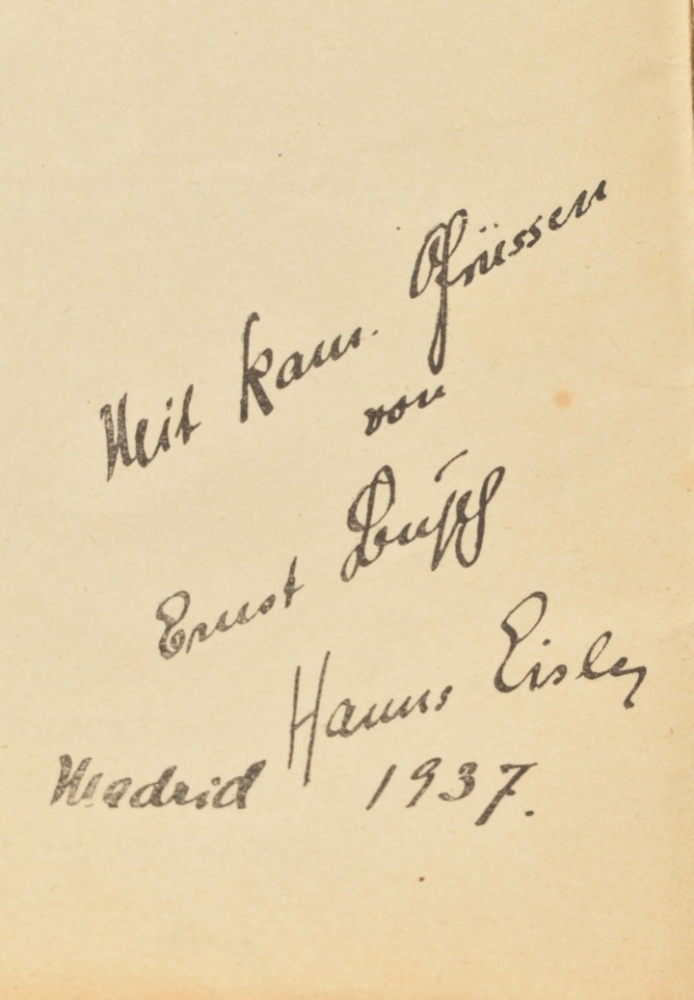 Mit kam. Grüssen
von
Ernst Busch
Hanns Eisler
Madrid 1937.